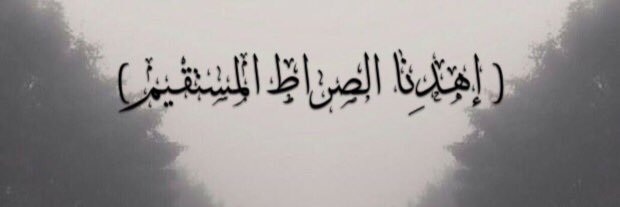 ( إهدنا الصراط المستقيم )